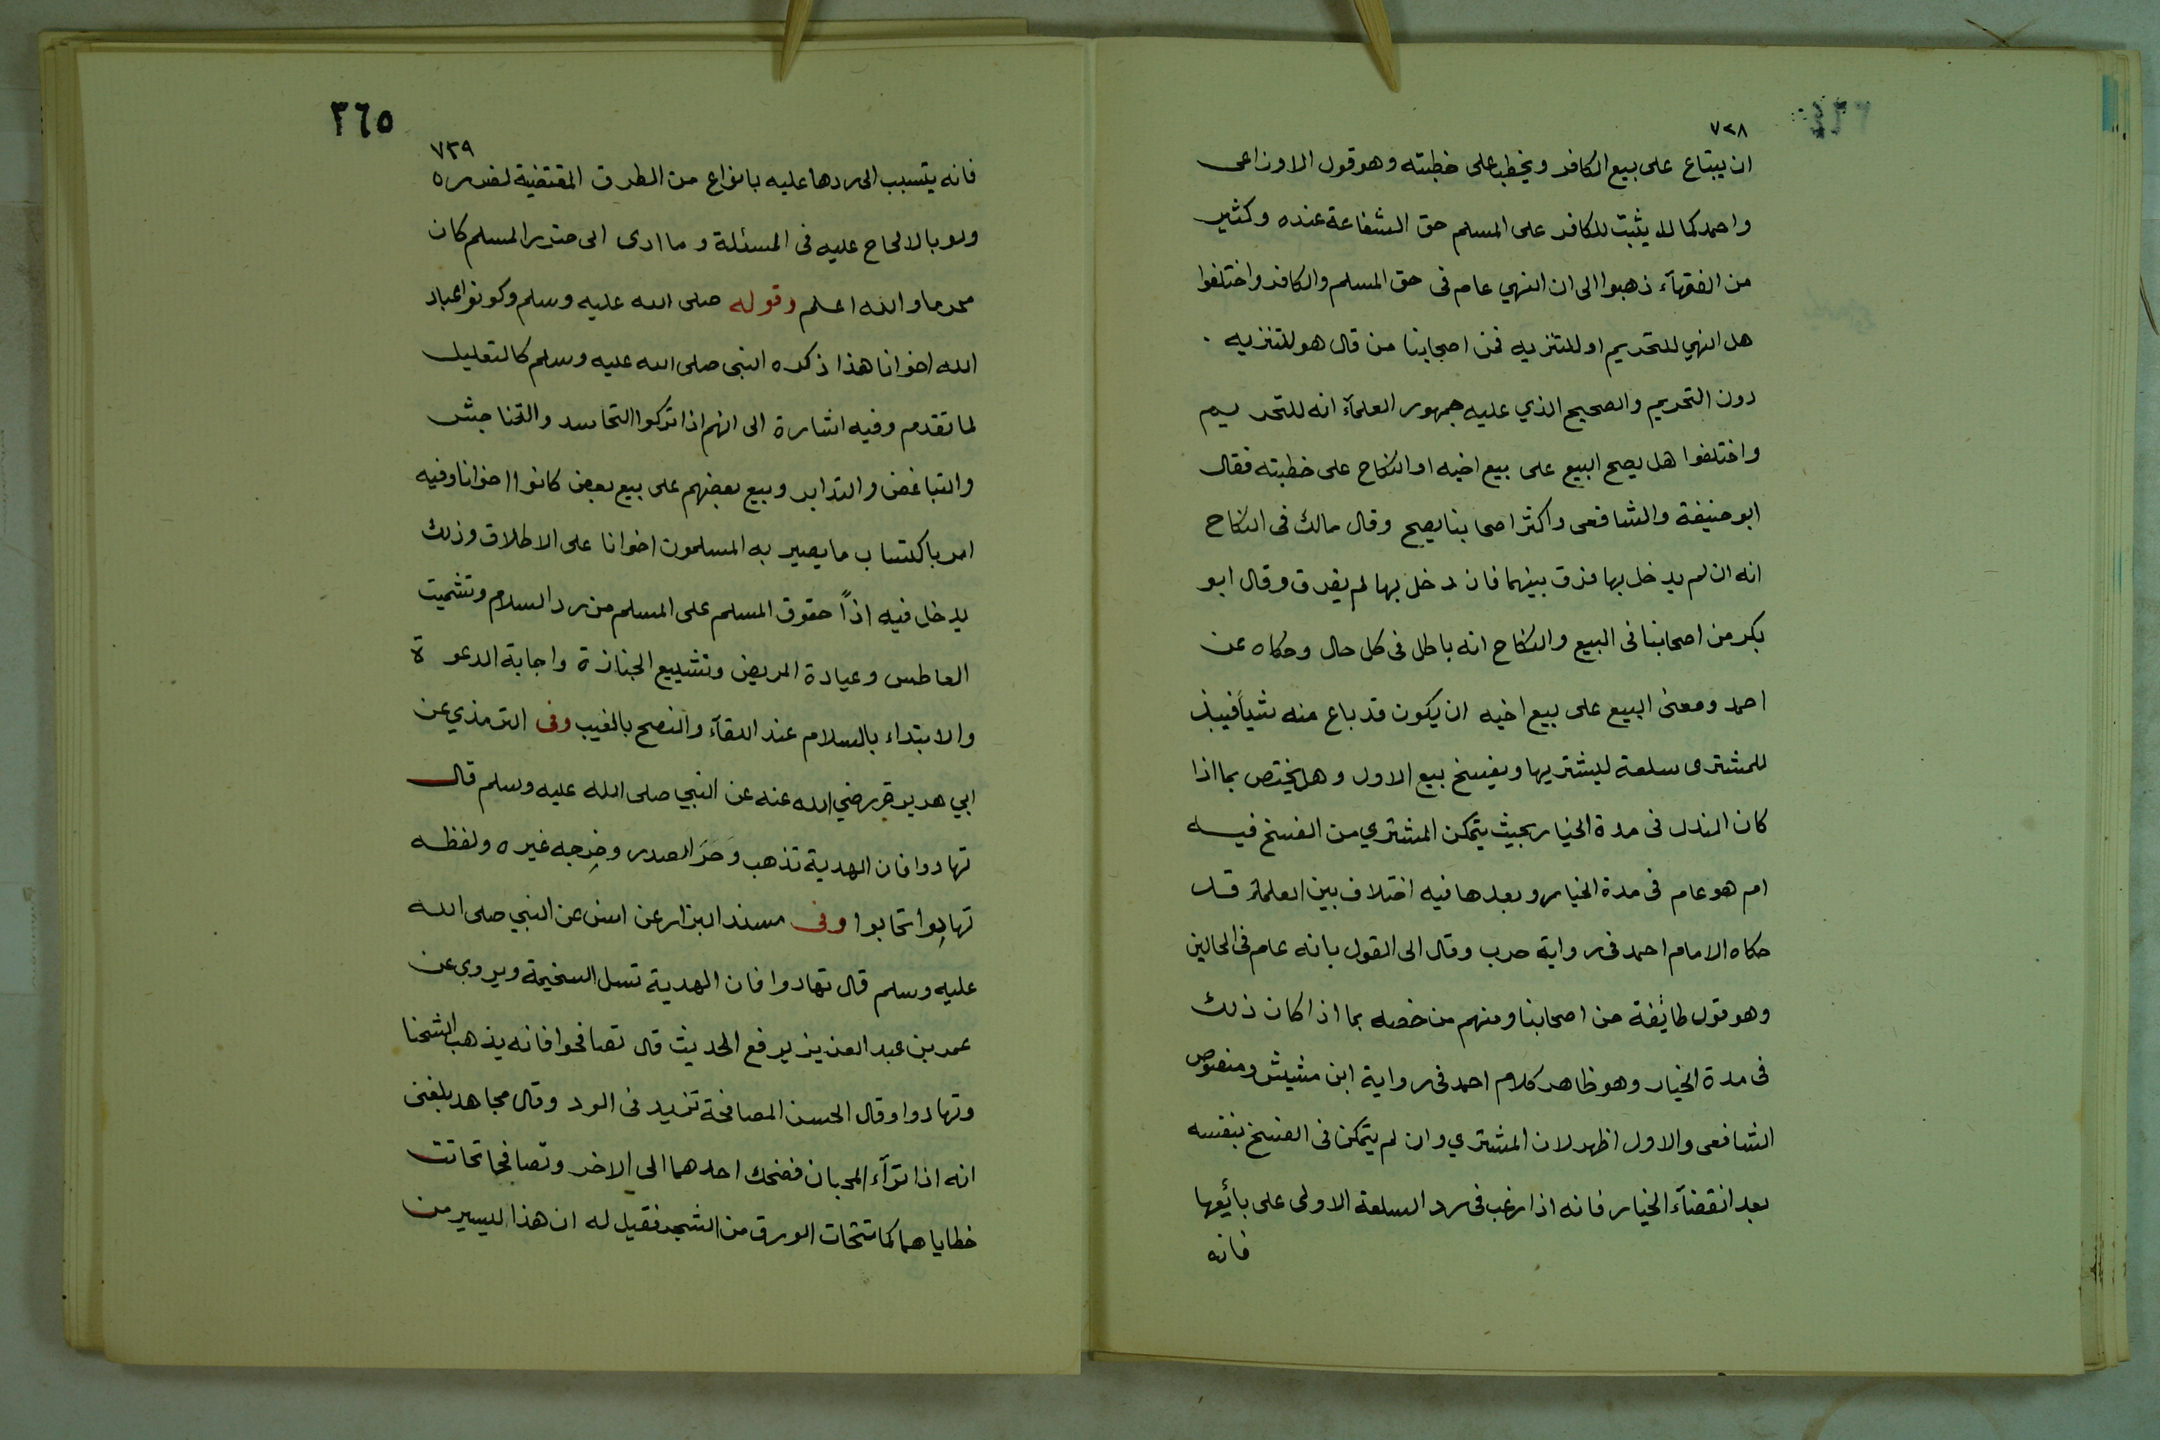 ٧٣٨
ان يبتاع على بيع الكافر ويخطب على خطبته وهو قول الاوزاعي
واحمد كما لا يثبت للكافر على المسلم حق الشفاعة عنده وكثير
من الفقهآء ذهبوا الى ان النهي عام فى حق المسلم والكافر واختلفوا
هل النهي للتحريم او للتنزيه فمن اصحابنا من قال هو للتنزيه .
دون التحريم والصحيح الذي عليه جمهور العلمآء انه للتحريم
واختلفوا هل يصح البيع على بيع اخيه او النكاح على خطبته فقال
ابو حنيفة والشافعى واكثر اصحابنا يصح وقال مالك فى النكاح
انه ان لم يدخل بها فرق بينهما فان دخل بها لم يفرق وقال ابو
بكر من اصحابنا فى البيع والنكاح انه باطل فى كل حال وحكاه عن
احمد ومعنى البيع على بيع اخيه ان يكون قد باع منه شيأ فيبذل
للمشترى سلعة ليشتريها ويفسخ بيع الاول وهل يختص بما اذا
كان البذل فى مدة الخيار بحيث يتمكن المشتري من الفسخ فيه
ام هو عام فى مدة الخيار وبعدها فيه اختلاف بين العلمآء قد
حكاه الامام احمد فى رواية حرب وقال الى القول بانه عام فى الحالين
وهو قول طائفة من اصحابنا ومنهم من خصه بما اذا كان ذلك
فى مدة الخيار وهو ظاهر كلام احمد فى رواية ابن مشيش ومنصوص
الشافعى والاول اظهر لان المشتري وان لم يتمكن فى الفسخ بنفسه
بعد انقضآء الخيار فانه اذا رغب فى رد السلعة الاولى على بائعها
فانه
٣٦٥
٧٣٩
فانه يتسبب الى ردها عليه بانواع من الطرق المقتضية لضرره
ولو بالالحاح عليه فى المسئلة وما ادى الى ضرر المسلم كان
محرما والله اعلم وقوله صلى الله عليه وسلم وكونوا عباد
الله اخوانا هذا ذكره النبى صلى الله عليه وسلم كالتعليل
لما تقدم وفيه اشارة الى انهم اذا تركوا التحاسد والتناجش
والتباغض والتدابر وبيع بعضهم على بيع بعض كانوا اخوانا وفيه
امر باكتساب ما يصير به المسلمون اخوانا على الاطلاق وذلك
يدخل فيه اذاً حقوق المسلم على المسلم من رد السلام وتشميت
العاطس وعيادة المريض وتشييع الجنازة واجابة الدعوة
والابتداء بالسلام عند اللقآء والنصح بالغيب وفى الترمذي عن
ابي هريرة رضي الله عنه عن النبي صلى الله عليه وسلم قال
تهادوا فان الهدية تذهب وَحَرَ الصدر وخرجه غيره ولفظه
تهادوا تحابوا وفى مسند البزار عن انس عن النبي صلى الله
عليه وسلم قال تهادوا فان الهدية تسل السخيمة ويروي عن
عمر بن عبد العزيز يرفع الحديث قال تصافحوا فانه يذهب الشحنا
وتهادوا وقال الحسن المصافحة تزيد فى الود وقال مجاهد بلغنى
انه اذا ترآء المحبان فضحك احدهما الى الاخر وتصافحا تحاتت
خطاياهما كما تتحات الورق من الشجر فقيل له ان هذا ليسير من